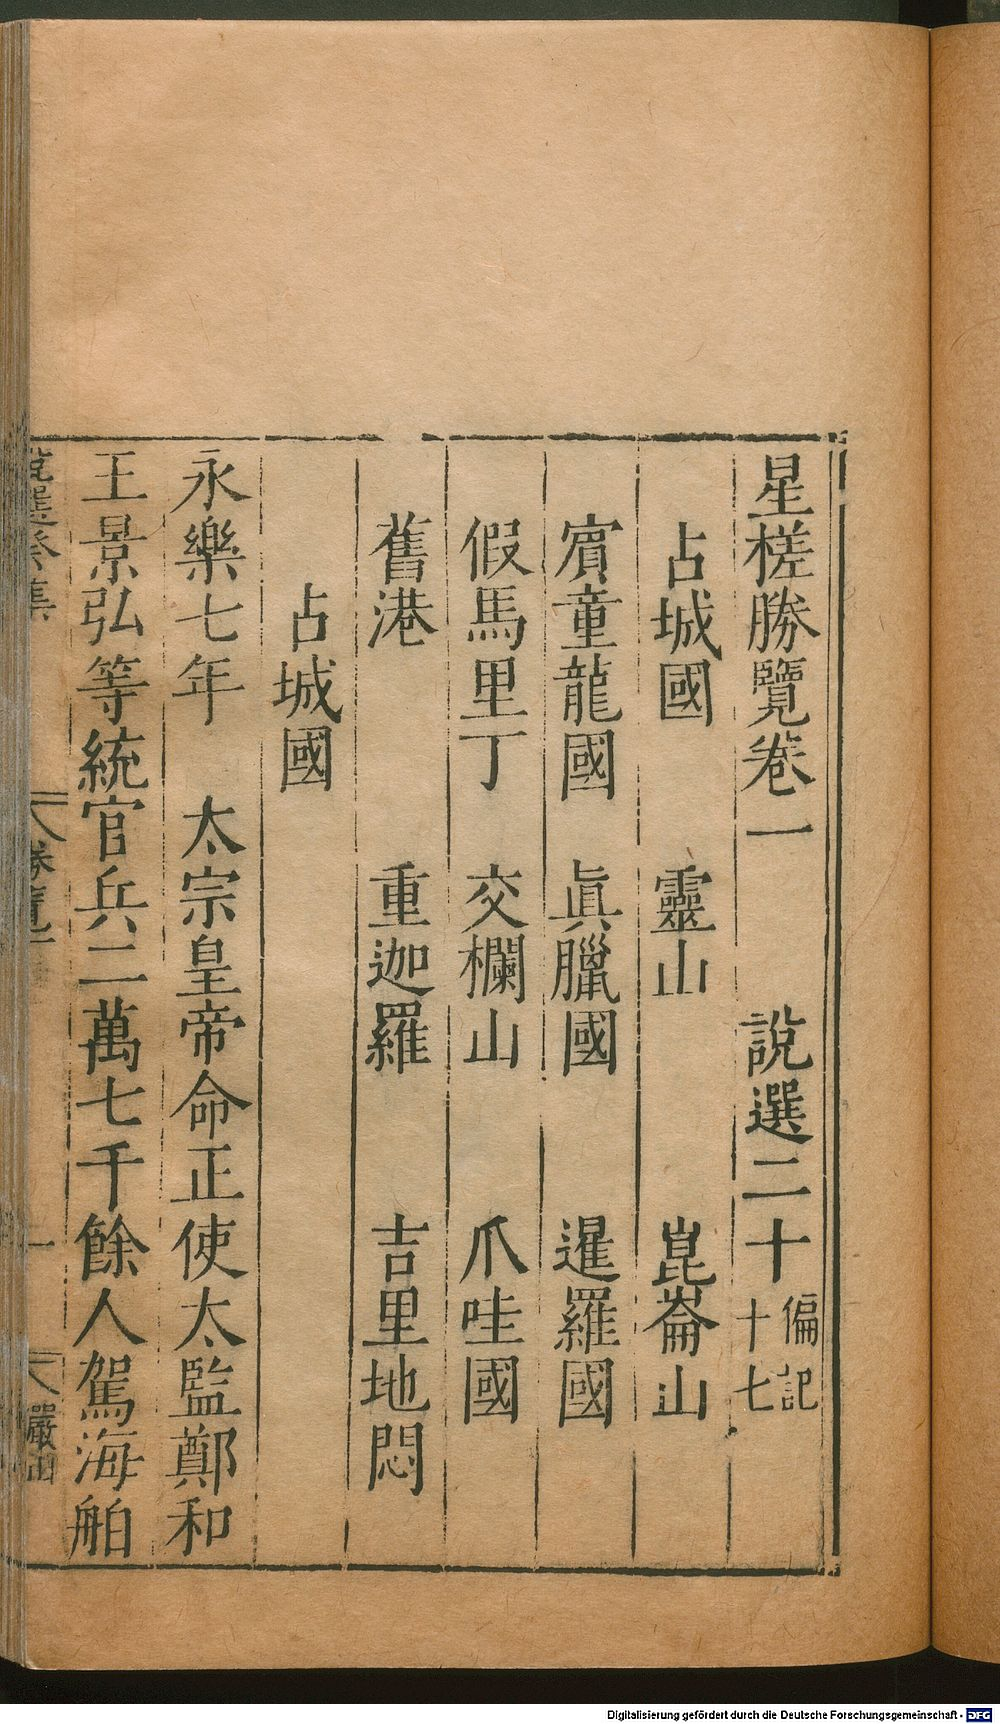 星槎勝覽卷一 說選二十 偏記十七
占城國 靈山 崑崙山
賓童龍國 眞臘國 暹羅國
假馬里丁 交欄山 爪哇國
舊港 重迦羅 吉里地悶
占城國
永樂七年 太宗皇帝命正使太監鄭和
王景弘等統官兵二萬七千餘人駕海舶
說選癸集 勝覽一 一 嚴山
Digitalisierung gefördert durch die Deutsche Forschungsgemeinschaft - DFG